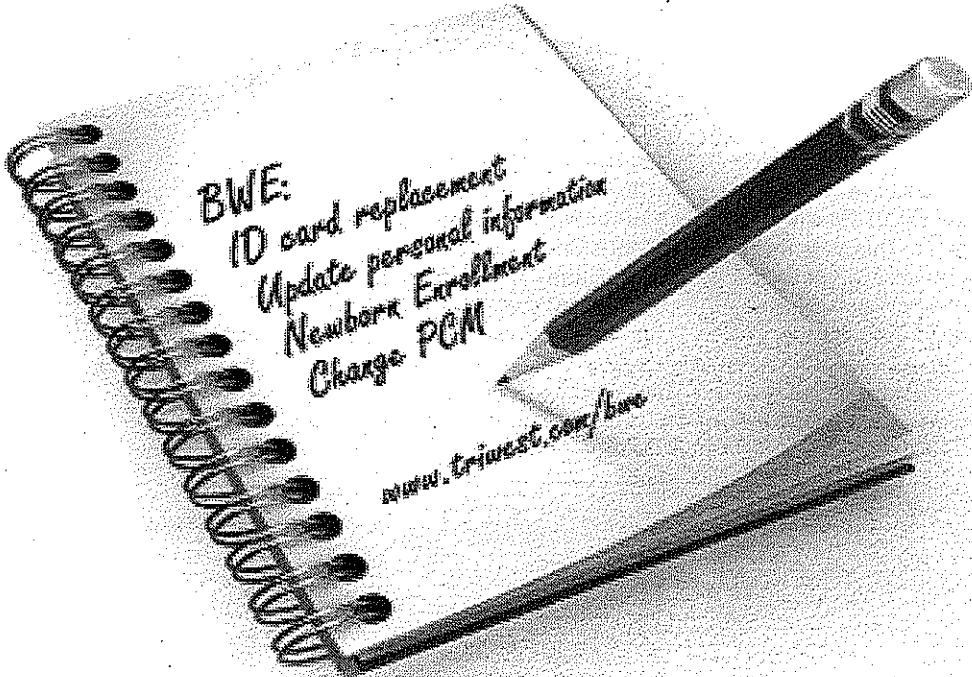 BWE:
ID card replacement
Update personal information
Newborn Enrollment
Change PCM
www.triwest.com/bwe